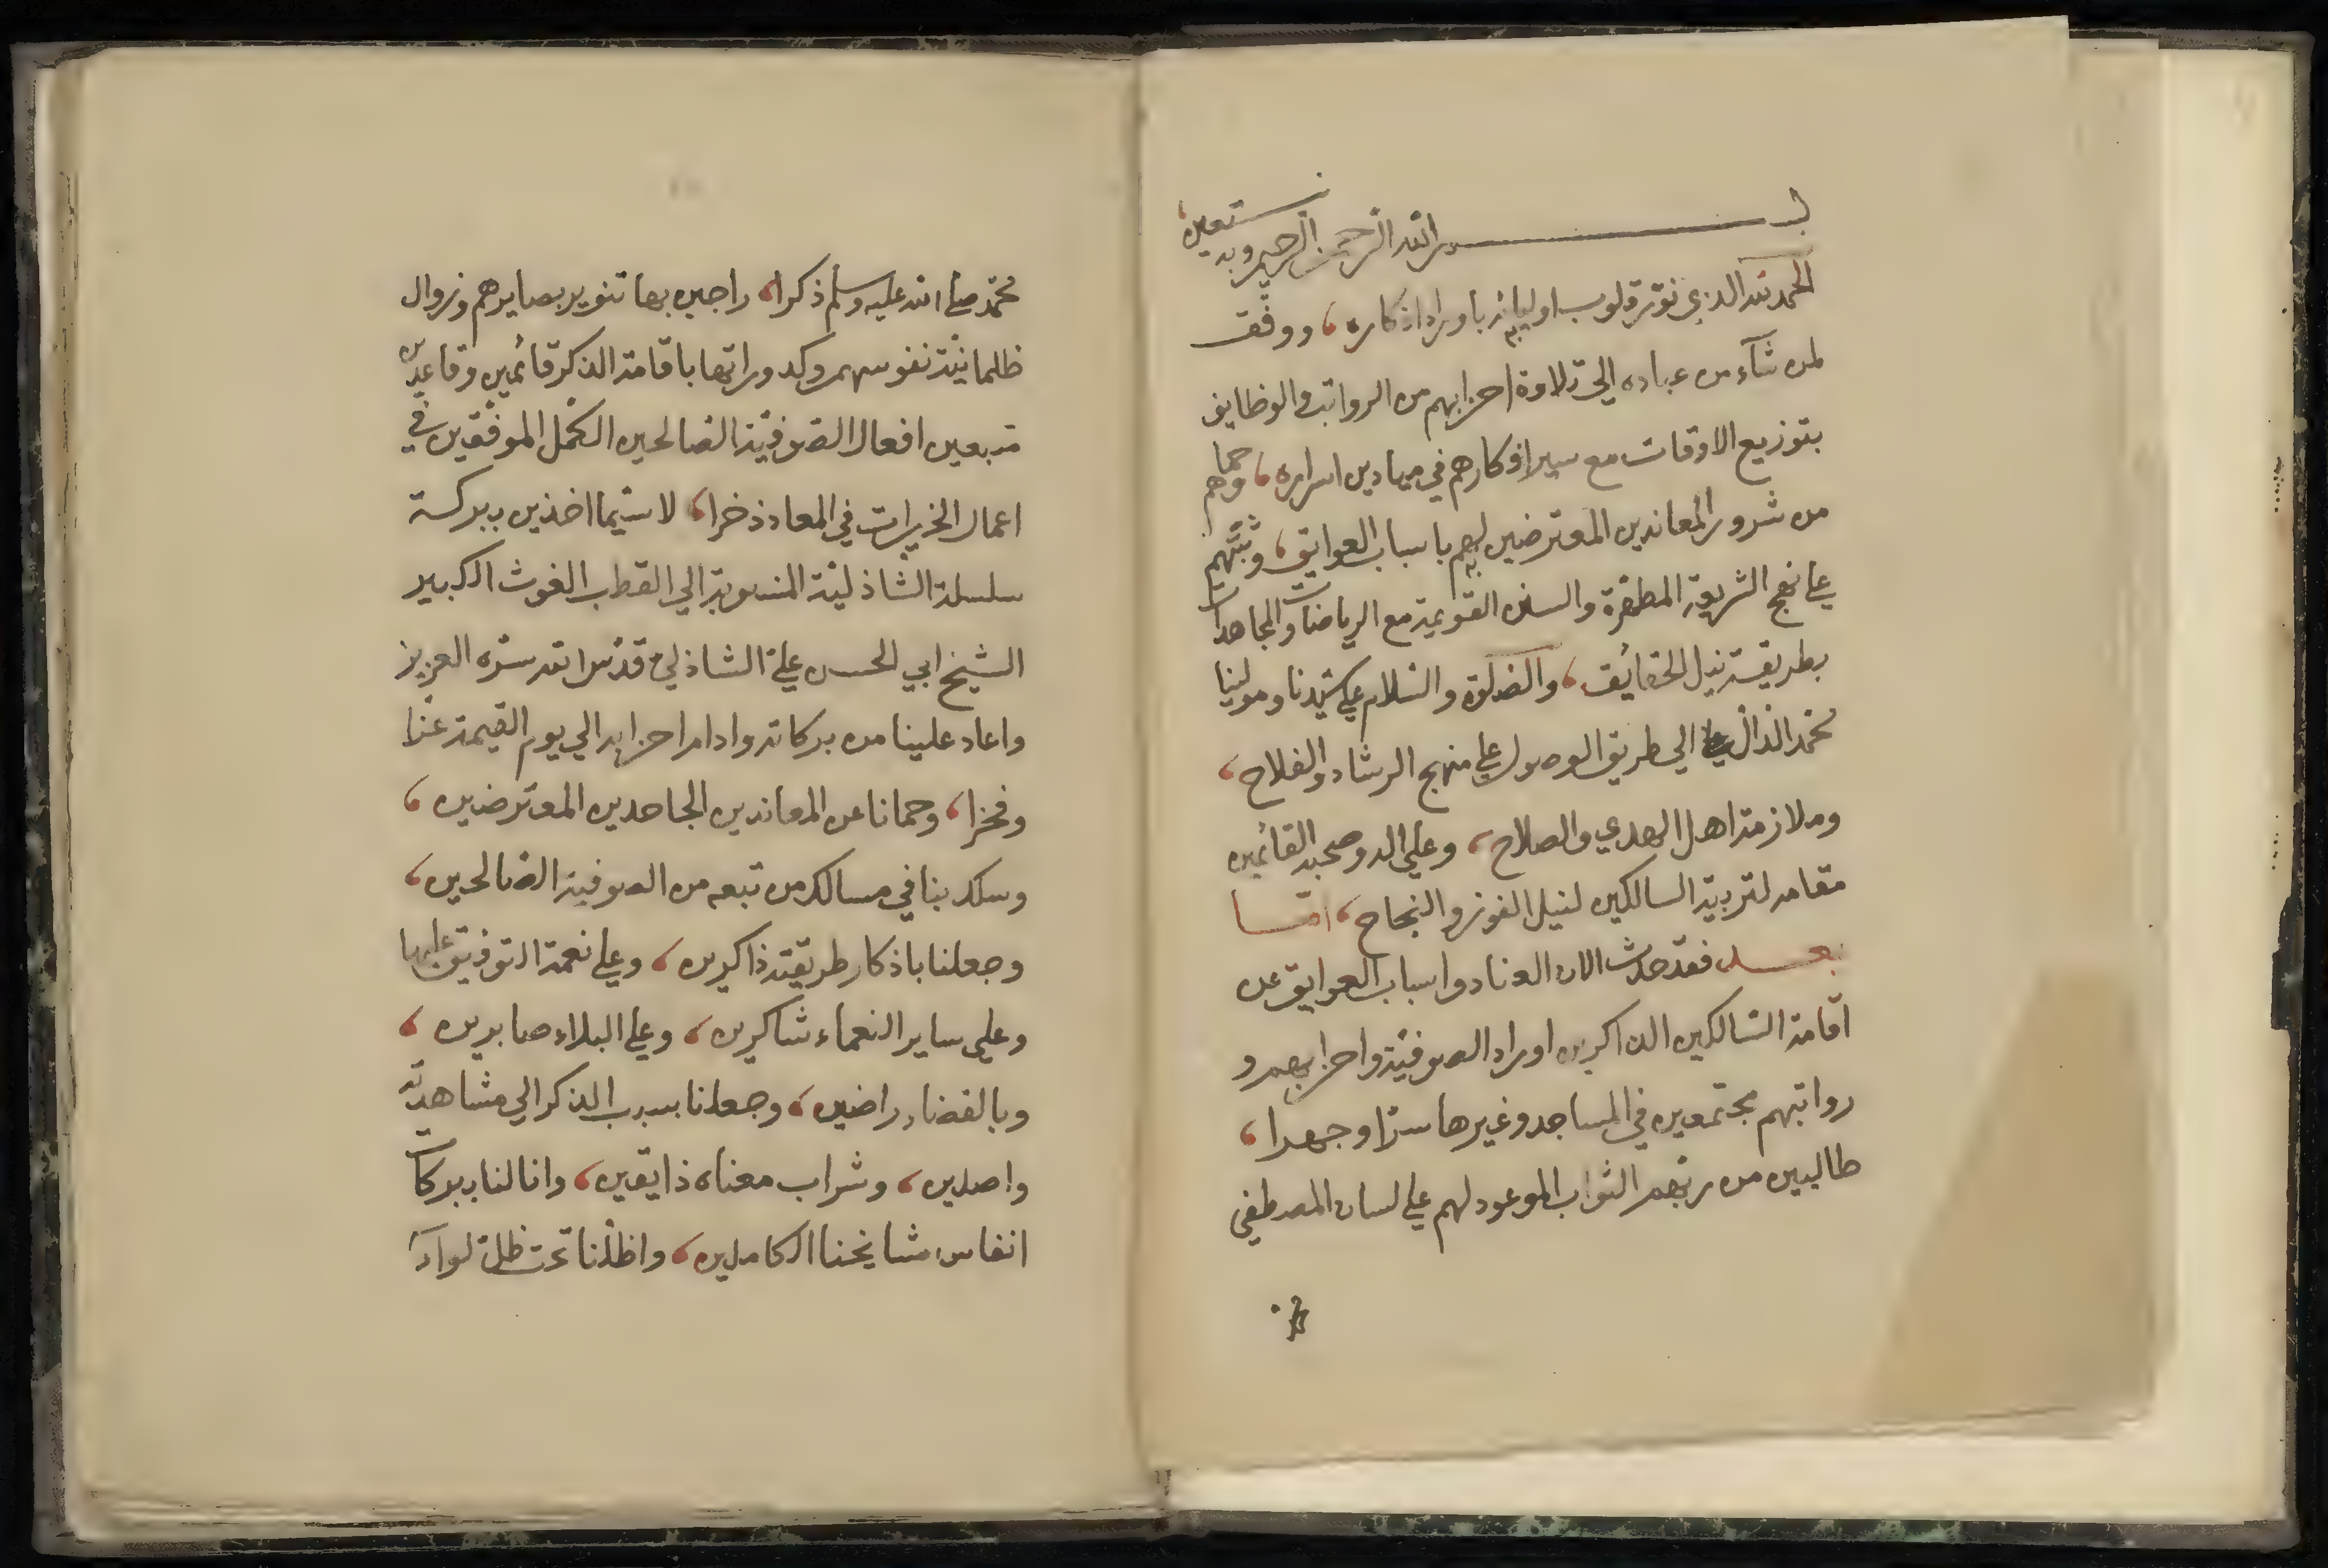 بسم الله الرحمن الرحيم وبه نستعين
الحمد لله الذي نوّر قلوب اوليائه باوراد اذكاره، ووفّق
لمن شآء من عباده الي تلاوة احزابهم من الرواتب والوظايف
بتوزيع الاوقات مع سير افكارهم في ميادين اسراره، وحماهم
من شرور المعاندين المعترضين لهم باسباب العوايق، وثبّتهم
علي نهج الشريعة المطهّرة والسنن القويمة مع الرياضات والمجاهدات
بطريقة نيل الحقائق، والصّلوة والسّلام علي سيّدنا ومولينا
محمّد الدّالّ الي طريق الوصول علي منهج الرشاد والفلاح،
وملازمة اهل الهدي والصلاح، وعلي اله وصحبه القائمين
مقامه لتربية السالكين لنيل الفوز والنجاح، امّا
بعد فقد حدث الان العناد واسباب العوايق عن
اقامة السّالكين الذاكرين اوراد الصوفيّة واحزابهم و
رواتبهم مجتمعين في المساجد وغيرها سرّا وجهرا،
طالبين من ربّهم الثواب الموعود لهم علي لسان المصطفي
محمّد صلي الله عليه وسلم ذكرا، راجين بها تنوير بصايرهم وزوال
ظلمانيّة نفوسهم وكدوراتها باقامة الذكر قائمين وقاعدين
متبعين افعال الصّوفيّة الصّالحين الكمّل الموفّقين في
اعمال الخيرات في المعاد ذخرا، لا سيّما اخذين ببركة
سلسلة الشّاذليّة المنسوبة الي القطب الغوث الكبير
الشيخ ابي الحسن علي الشاذلي قدّس الله سرّه العزيز
واعاد علينا من بركاته وادام احزابه الي يوم القيمة عزّا
وفخرا، وحمانا عن المعاندين الجاحدين المعترضين،
وسلك بنا في مسالك من تبعه من الصوفية الصّالحين،
وجعلنا باذكار طريقته ذاكرين، وعلي نعمة التوفيق عليها
وعلي ساير النعماء شاكرين، وعلي البلاء صابرين،
وبالقضاء راضين، وجعلنا بسبب الذكر الي مشاهدته
واصلين، وشراب معناه ذايقين، وانالنا ببركات
انفاس مشايخنا الكاملين، واظلّنا تحت ظلّ لوآء